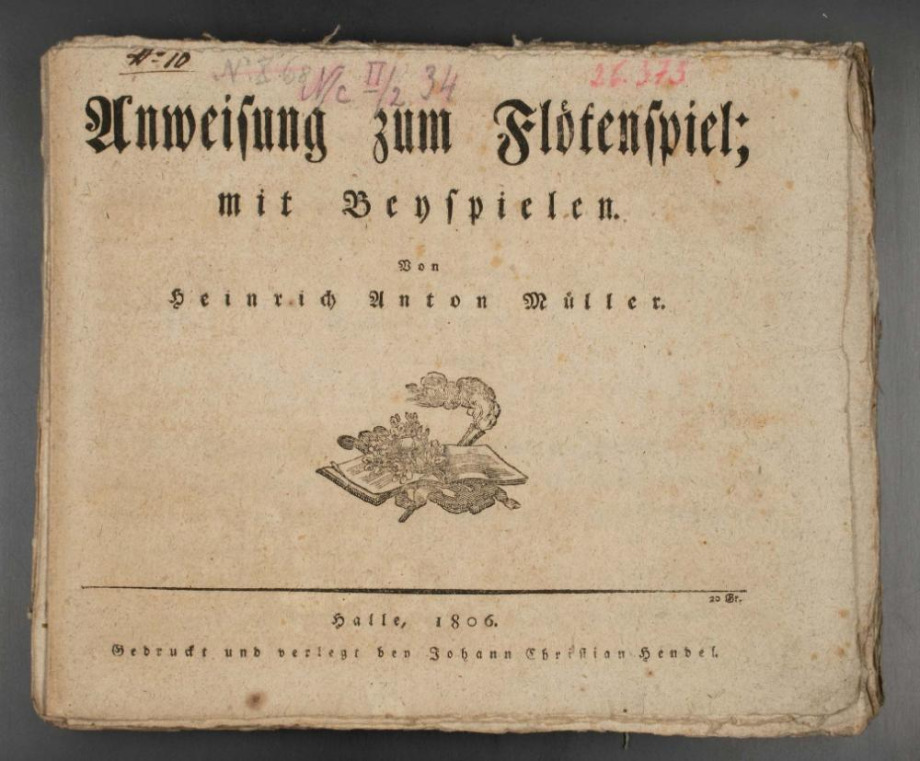 N=10
N. Z 68 N/c II/2 34
26.373
Anweisung zum Flötenspiel;
mit Beyspielen.
Von
Heinrich Anton Müller.
20 Gr.
Halle, 1806.
Gedruckt und verlegt bey Johann Christian Hendel.